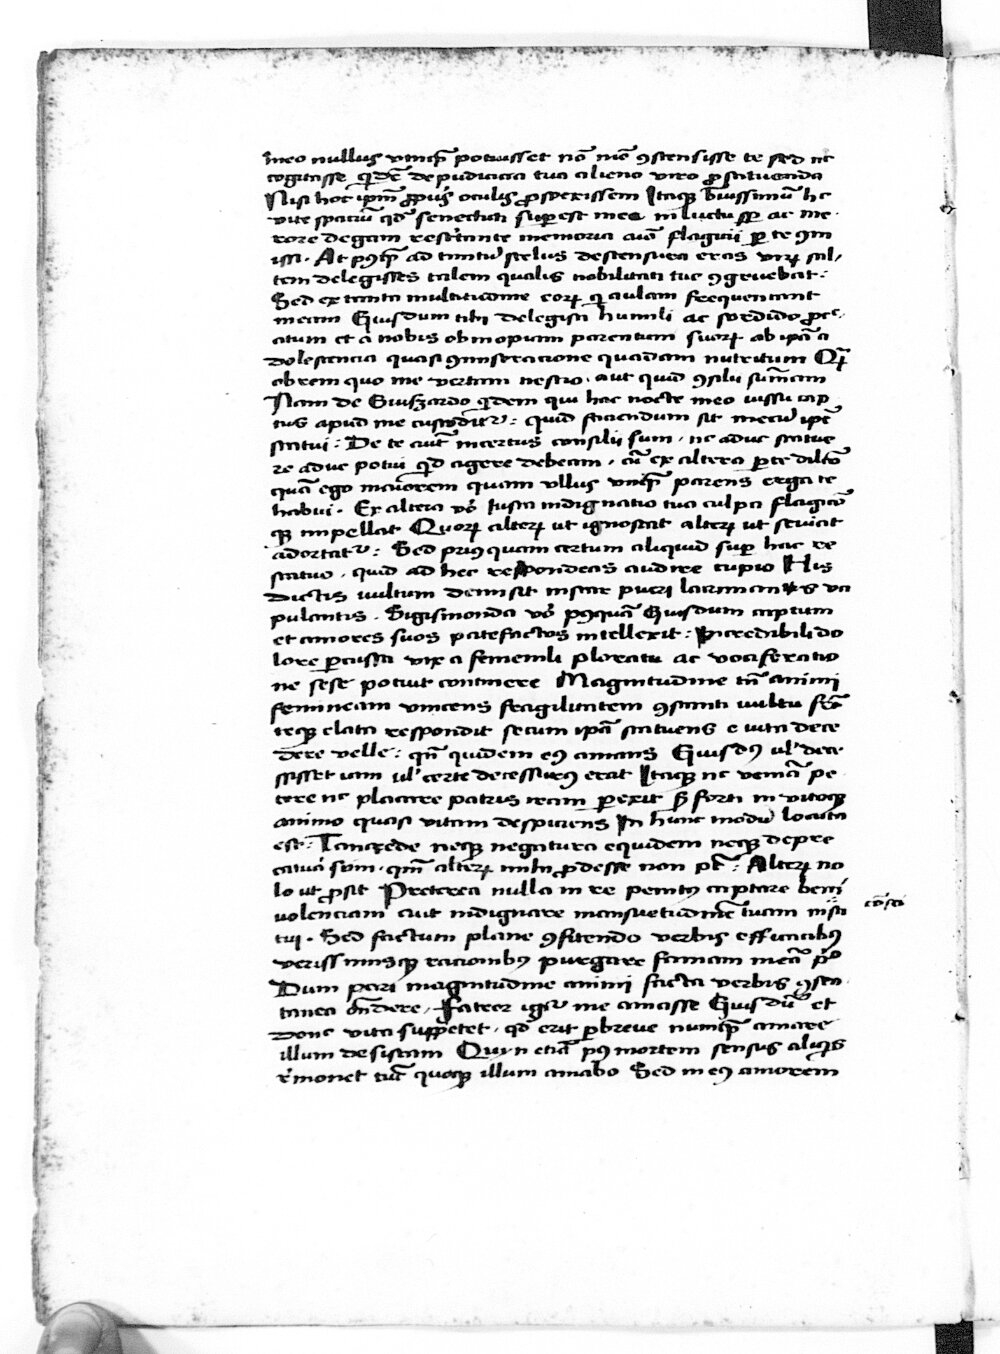 meo nullus vmq̃ potuisset nō mō ꝯsensisse te sed nc
cogitasse qͥdē de pudicicia tua alieno viro ꝓstituenda
Nisi hoc ipm̃ ꝓpijs oculis ꝓspexissem Itaqꝫ breuissimū hc
vite spaciū qd̕ senectuti supest mee in luctu sp ac me
rore degam restante memoria tuā flagicii p te ꝯm
issi · At pꝰq̃ ad tantū scelus descensura eras vtꝝ sal,
tem delegisses talem qualis nobilitati tue ꝯgruebat :
Sed ex tanta multitudine eoꝝ qͥ aulam frequentant
meam Guisdum tibi delegisti humili ac sordido ꝓcre
atum et a nobis ob inopiam parentum suoꝝ ab ipā a
dolescencia quasi ꝯmiseracione quadam nutritum Qm̃
ob rem quo me vertam nescio · aut quid ꝯsilii sumam
Nam de Guiszardo qͥdem qui hac nocte meo iussu cap
tus apud me custodit̃ : quid faciendum sit mecū ipē
statui : De te aut̃ incertus consilii sum · nc aduc statue
re aduc potui qd̕ agere debeam · cū ex altera pte dilcō
quā ego maiorem quam vllus vmq̃ parens erga te
habui · Ex altera vō Iusta indignatio tua culpa flagicō
qꝫ impellat Quoꝝ alteꝝ ut ignoscat alteꝝ ut seuiat
adortat̃ : Sed priꝰ quam certum aliquid sup hac re
statuo · quid ad hec respondeas audire cupio His
dictis uultum demisit instar pueri lacrimans va
pulantis · Sigismonda vō pꝰquā Guisdum captum
et amores suos patefactos intellexit : Incredibili do
lore pcussa vix a femenili ploratu ac vociferatio
ne sese potuit continere Magnitudine tn̄ animi
femineam vincens fragilitatem ꝯstanti uultu frō
teqꝫ elata respondit secum ipā statuens e vita dece
dere velle : qm̃ quidem eꝰ amans Guisdꝰ ul̕ dece
ssisset iam ul̕ certe decessurꝰ erat Itaqꝫ nc veniā pe
tere nc placare patris iram pexit ß forti in vitoqꝫ
animo quasi vitam despiciens In hunc modū locuta
est : Tancrede neqꝫ negatura equidem neqꝫ depre
catura sum · qm̃ alteꝝ mihi ꝓdesse non pt̃ : Alteꝝ no
lo ut ꝓsit Preterea nulla in re penitꝰ captare beni
uolenciam aut indignare mansuetudinē tuam insti
tui · Sed factum plane ꝯfitendo verbis efficacibꝰ
verissimisqꝫ racionibꝰ purgare famam meā pͥo
Dum pari magnitudine animi facta verbis ꝯsen
tanea on̄dere · Fateor igit̃ me amasse Guisdū et
donc vita suppetet · qd̕ erit pbreue numq̃ amare
illum desistam Quin etiā pꝰ mortem sensus aliqͥs
rͤmonet tūc quoqꝫ illum amabo Sed in eꝰ amorem